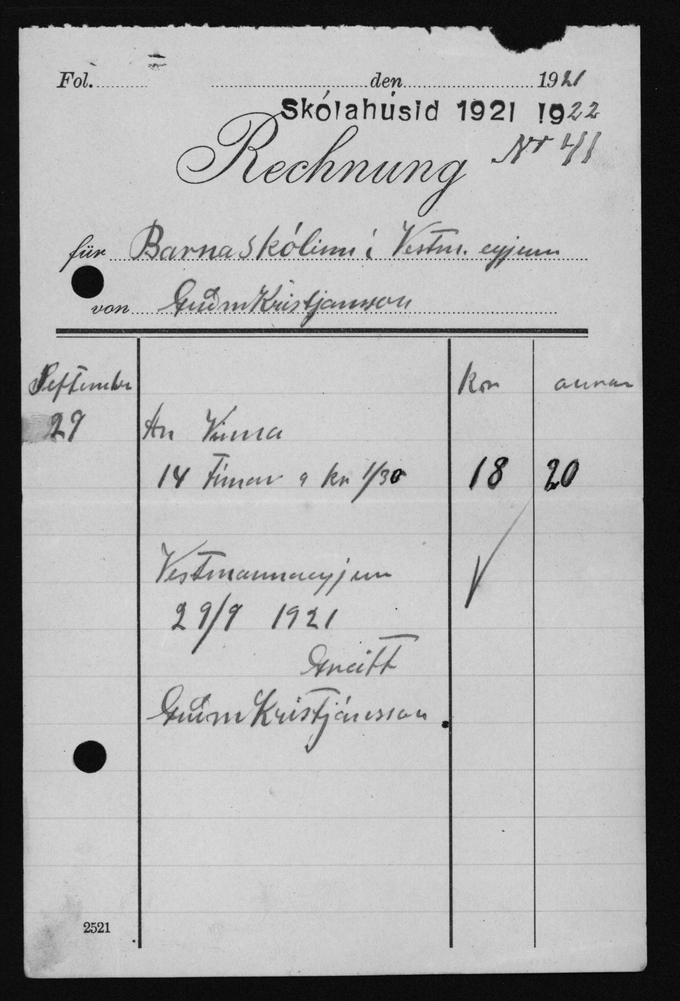 Fol. den 1921
Skólahúsid 1921 1922
Rechnung Nr 41
für Barnaskólinn í Vestm. eyjum
von Guðm Kristjansson
September Kr aurar
29 An Vinna
14 Tímar a kr 1/30 18 20
Vestmannaeyjum
29/9 1921
Greitt
Guðm Kristjánsson
2521